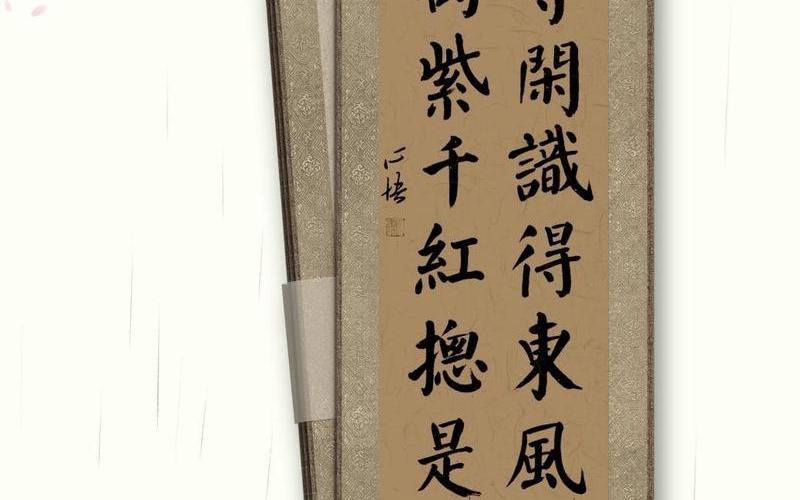 閑識得東風
紫千紅摠是
心悟